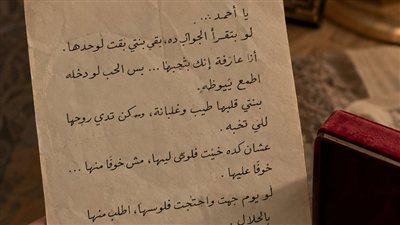 يا أحمد ...
لو بتقرأ الجواب ده، يبقى بنتي بقت لوحدها.
أنا عارفة إنك بتحبها... بس الحب لو دخله
اطمع يبوظه.
بنتي قلبها طيب وغلبانة، وممكن تدي روحها
للي تحبه.
عشان كده خبّت فلوسي ليها، مش خوفًا منها ...
خوفًا عليها.
لو يوم جهت واحتجت فلوسها، اطلب منها
بالحلال.